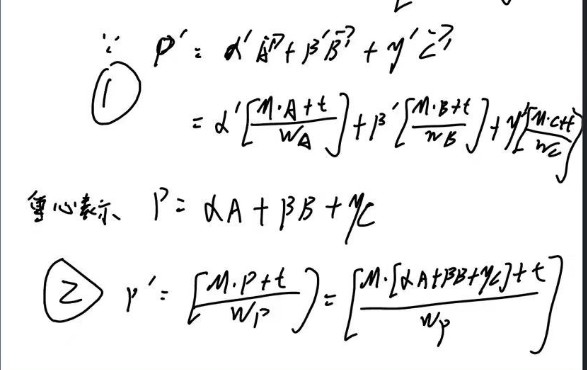 ∵ P' = α'A' + β'B' + γ'C'
① = α'[M·A+t / W_A] + β'[M·B+t / W_B] + γ'[M·C+t / W_C]
重心表示 P = αA + βB + γC
② P' = [M·P+t / W_P] = [M·[αA+βB+γC]+t / W_P]